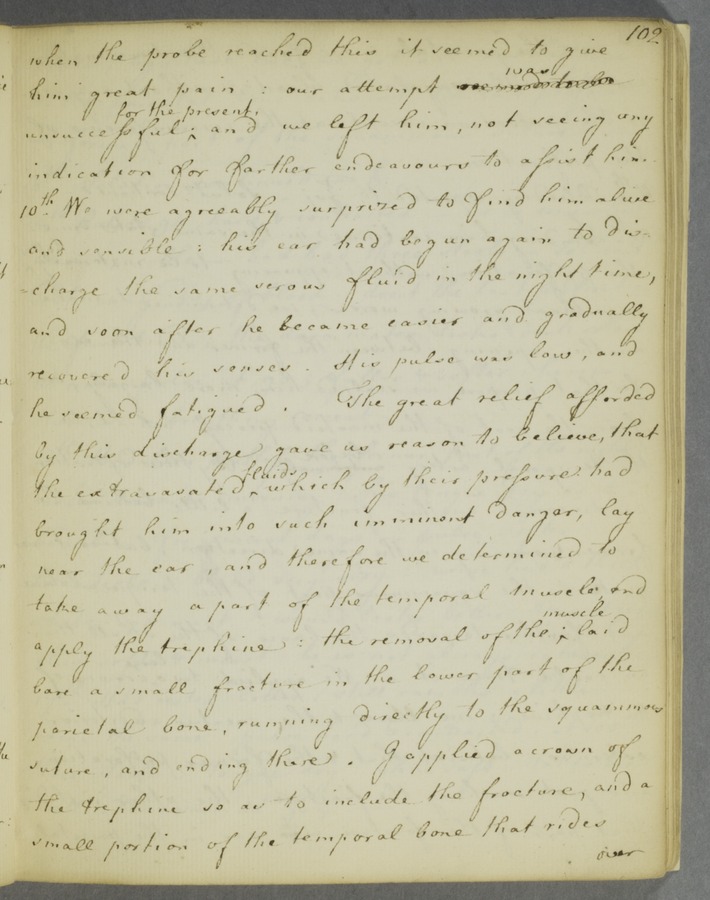 102
when the probe reached this it seemed to give
him great pain : our attempt was
unsuccessful for the present; and we left him, not seeing any
indication for farther endeavours to assist him.
10th. We were agreeably surprized to find him alive
and sensible : his ear had begun again to dis=
=charge the same serous fluid in the night time,
and soon after he became easier and gradually
recovered his senses. His pulse was low, and
he seemed fatigued. The great relief afforded
by this discharge gave us reason to believe, that
the extravasated fluids which by their pressure had
brought him into such imminent danger, lay
near the ear, and therefore we determined to
take away a part of the temporal muscle, and
apply the trephine : the removal of the muscle laid
bare a small fracture in the lower part of the
parietal bone, running directly to the squammous
suture, and ending there. I applied a crown of
the trephine so as to include the fracture, and a
small portion of the temporal bone that rides
over